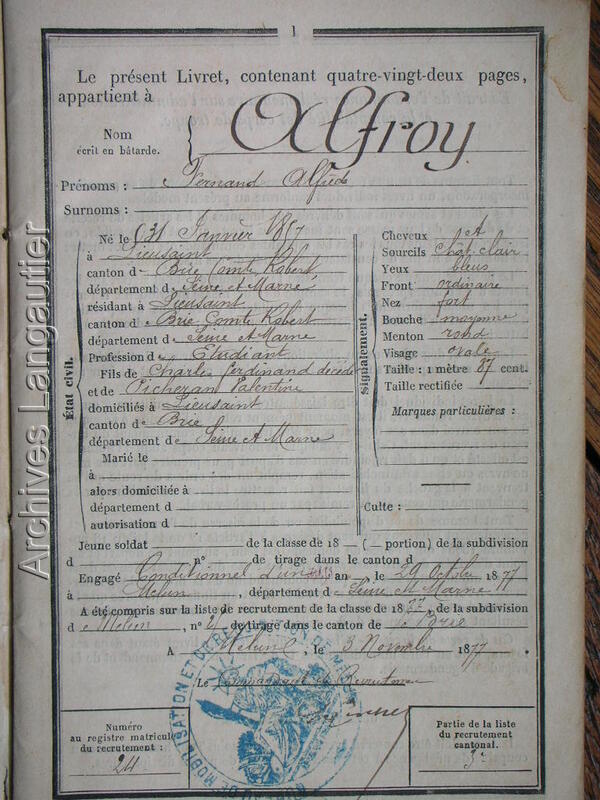 1
Le présent Livret, contenant quatre-vingt-deux pages,
appartient à
Nom
écrit en bâtarde.
Alfroy
Prénoms : Fernand Alfred
Surnoms :
État civil.
Né le 31 Janvier 1857
à Lieusaint
canton de Brie Comte Robert
département de Seine et Marne
résidant à Lieusaint
canton de Brie Comte Robert
département de Seine et Marne
Profession de Etudiant
Fils de Charles Ferdinand décédé
et de Picheran Valentine
domiciliés à Lieusaint
canton de Brie
département de Seine et Marne
Marié le
à
alors domiciliée à
département d
autorisation d
Signalement.
Cheveux et
Sourcils Chât. clair
Yeux bleus
Front ordinaire
Nez fort
Bouche moyenne
Menton rond
Visage ovale
Taille : 1 mètre 87 cent.
Taille rectifiée
Marques particulières :
Culte :
Jeune soldat de la classe de 18 ( portion) de la subdivision
d n° de tirage dans le canton d
Engagé Conditionnel d'un an, le 29 Octobre 1877
à Melun, département de Seine et Marne
A été compris sur la liste de recrutement de la classe de 1877, de la subdivision
de Melun, n° de tirage dans le canton de Brie
A Melun, le 3 Novembre 1877
Le Commandant de Recrutement
Numéro
au registre matricule
du recrutement :
24
Partie de la liste
du recrutement
cantonal.
3e
BUREAU DE MOBILISATION ET DE
Archives Langautier